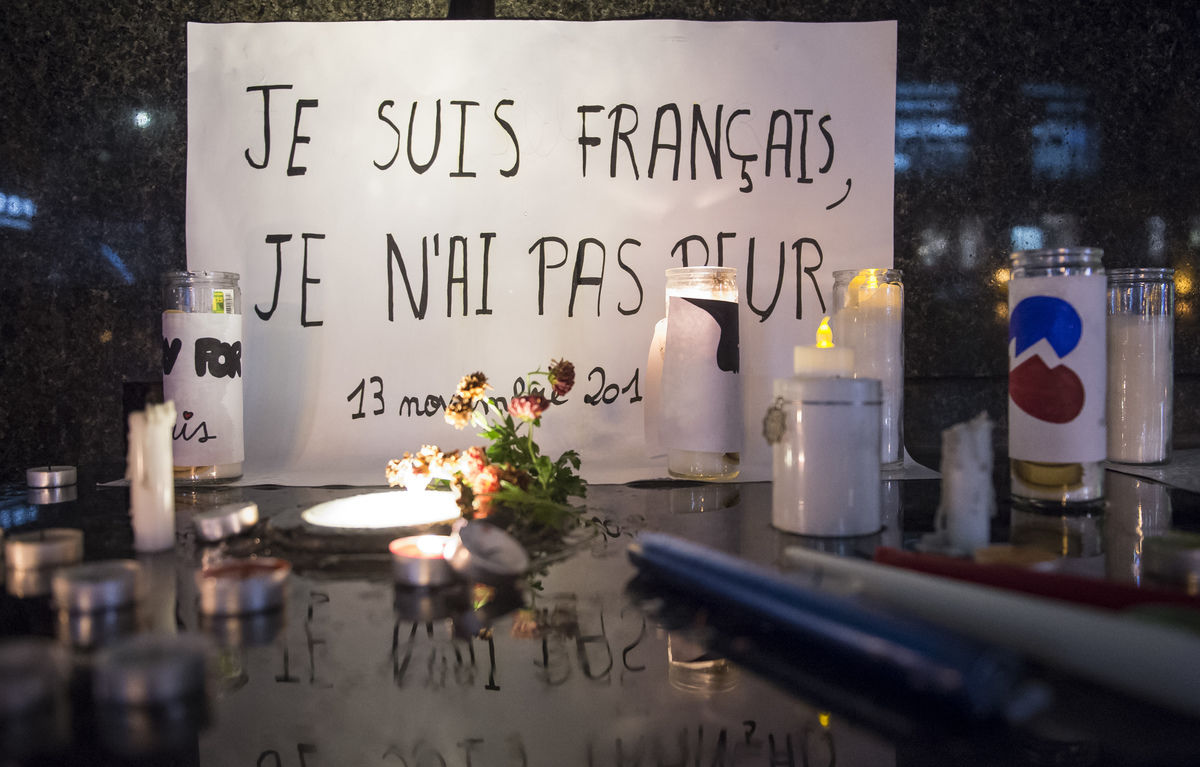 JE SUIS FRANÇAIS,
JE N'AI PAS PEUR
13 novembre 201
FOR